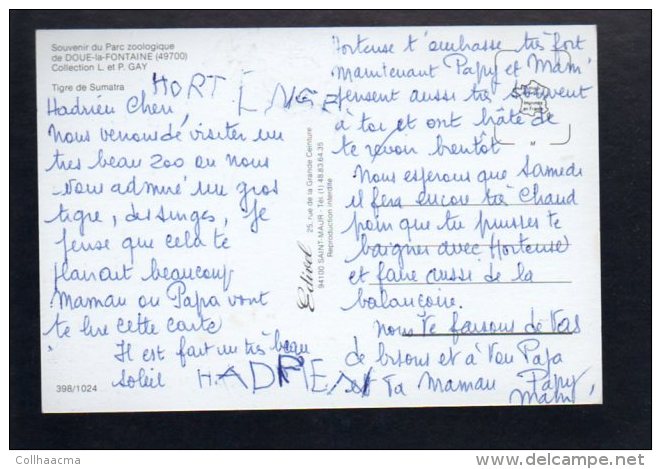 Souvenir du Parc zoologique
de DOUE-la-FONTAINE (49700)
Collection L. et P. GAY
Tigre de Sumatra
HORTENSE
Hadrien Cheri,
Nous venons de visiter un
tres beau Zoo ou nous
avons admiré un gros
tigre, des singes, Je
pense que cela te
plairait beaucoup
Maman ou Papa vont
te lire cette carte
Il est fait un très beau
soleil
HADRIEN
398/1024
Edivel
25, rue de la Grande Ceinture
94100 SAINT-MAUR - Tél. (1) 48.83.64.35
Reproduction interdite
Hortense t'embrasse très fort
Maintenant Papy et Mam'
pensent aussi très souvent
à toi et ont hâte de
te revoir bientôt
Nous esperons que Samedi
il fera encore très Chaud
pour que tu puisses te
baigner avec Hortense
et faire aussi de la
balançoire.
Nous Te faisons de
de bisous et à Ton Papa
et Ta Maman Papy
Mam'
M
Collhaacma
www.delcampe.net